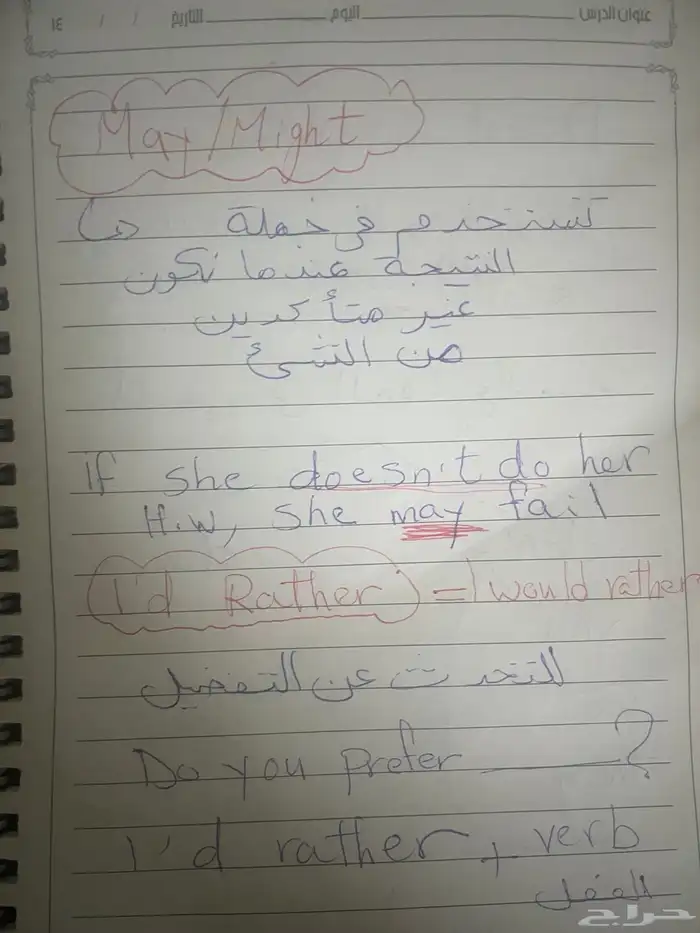 عنوان الدرس اليوم التاريخ / / ١٤
May/Might
تستخدم في جملة
النتيجة عندما نكون
غير متأكدين
من الشئ
If she doesn't do her
H.W, she may fail
I'd Rather = I would rather
للتحدث عن التفضيل
Do you prefer ?
I'd rather + verb
الفعل
حراج